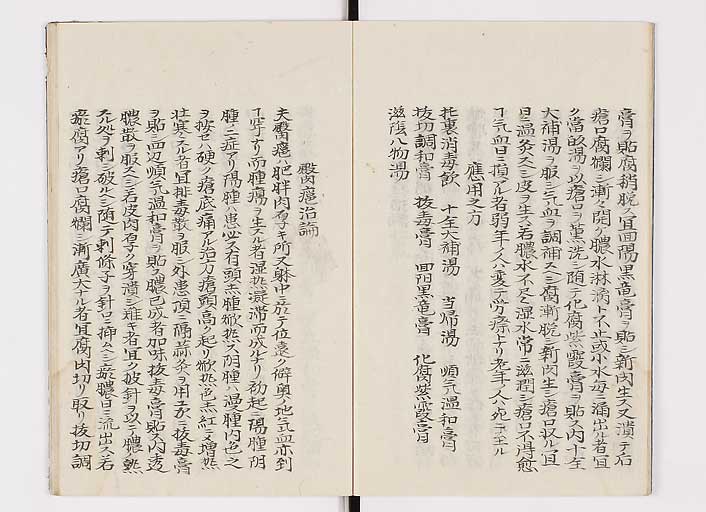 膏ヲ貼腐稍脱ス宜回陽黒竜膏ヲ貼シ新肉生ス又潰テ后
瘡口腐爛シ漸々開ク膿水淋漓ト不止或小水毎ニ涌出ル者宜
ク当皈湯ヲ以瘡口ヲ薫洗シ随テ化腐紫霞膏ヲ貼ス内十全
大補湯ヲ服シ気血ヲ調補スシ腐漸脱シ新肉生シ瘡口收ル宜
日ニ温灸スシ皮ヲ生ス若膿水不尽湿水常ニ滋潤シ瘡口不得愈
〆気血日ニ損ル者弱年ノ人ハ変テ労瘵ト成リ老年ノ人ハ死ニ至ル
應用之方
托裏消毒飲 十全大補湯 当帰湯 順気温和膏
抜切調和膏 抜毒膏 回陽黒竜膏 化腐紫霞膏
滋陰八物湯
臀癰治論
夫臀癰ハ肥胖肉厚キ所又躰中ニ於テ位遠ク僻奥ノ地気血亦到
罕ナリ而腫瘍ヲ生スル者湿熱凝滞而成ルナリ初起ニ陽腫陰
腫ノ二症アリ陽腫ハ患必又有頭赤腫㷔熱ス陰腫ハ漫腫内色之
ヲ按セハ硬ク瘡底痛ム治方瘡頭高ク起リ㷔熱色赤紅ニ又増熱
壮寒スル者宜排毒散ヲ服シ外患頂ニ隔蒜灸ヲ用立ニ抜毒膏
ヲ貼シ四辺順気温和膏ヲ貼ス膿已成者加味抜毒膏貼ス内透
膿散ヲ服ス若皮肉厚ク穿潰シ難キ者宜ク披針ヲ以テ膿熟
スル処ヲ刺シ破ルシ随テ刺條子ヲ針口ニ挿ムシ瘀膿日ニ流出ス若
瘀腐アリ瘡口腐爛シ漸廣大ナル者宜腐肉切リ取リ抜切調